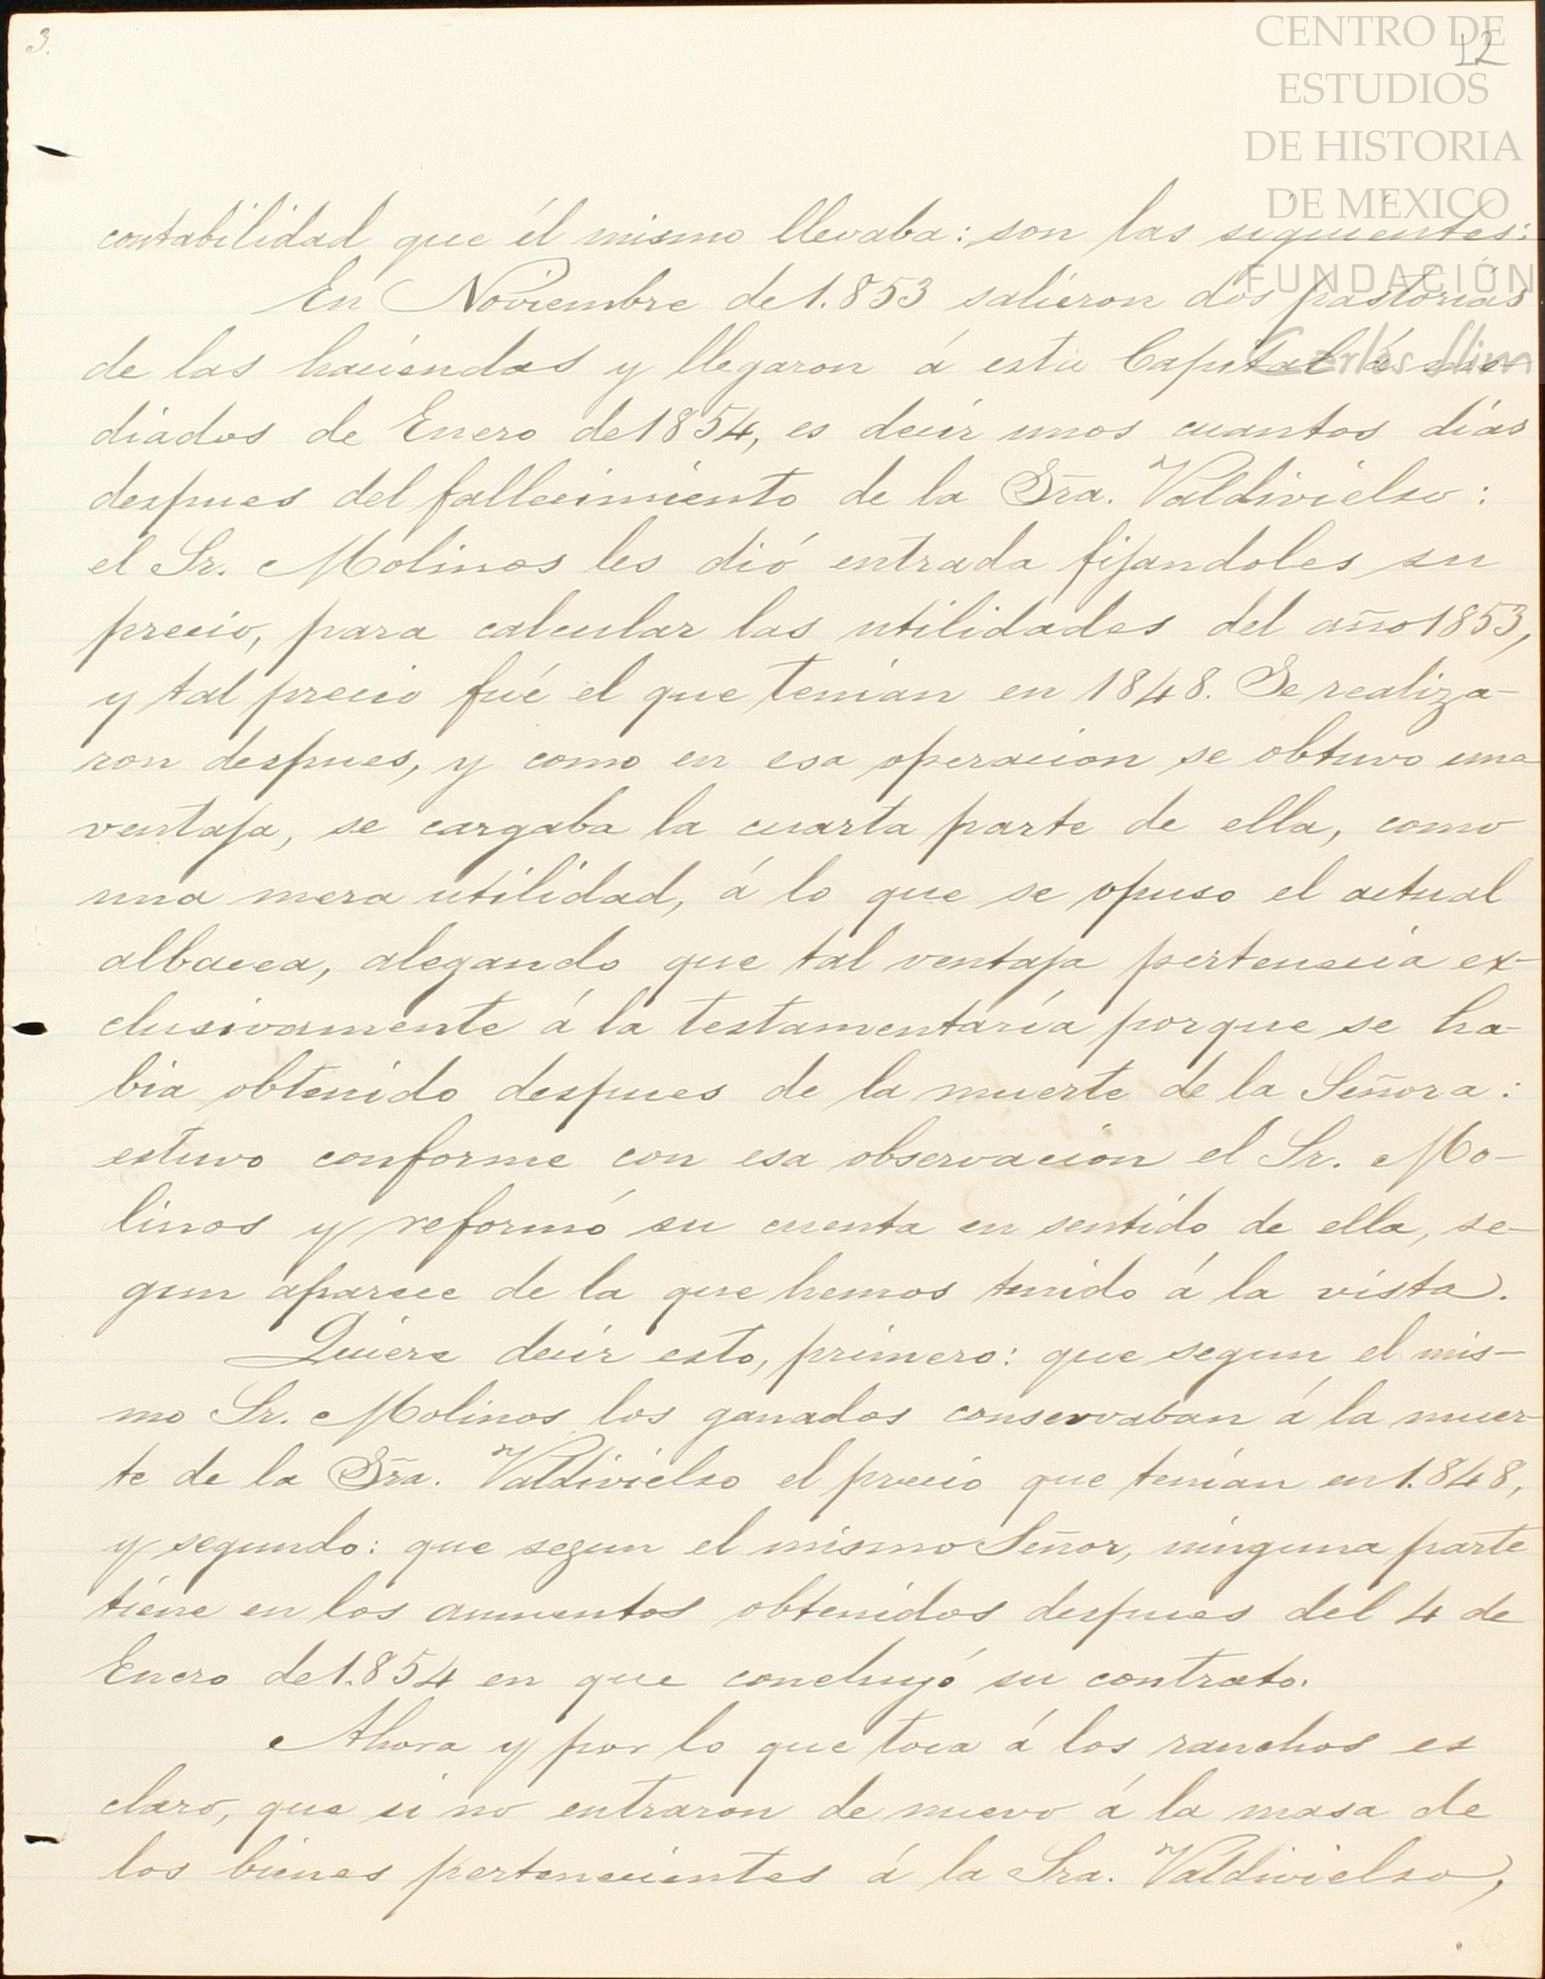 3.
12
CENTRO DE
ESTUDIOS
DE HISTORIA
DE MÉXICO
FUNDACIÓN
Carlos Slim
contabilidad que él mismo llevaba: son las siguientes:
En Noviembre de 1.853 salieron dos pastorías
de las haciendas y llegaron á esta Capital á me-
diados de Enero de 1854, es decir unos cuantos días
despues del fallecimiento de la Sra. Valdivielso:
el Sr. Molinos les dió entrada fijandoles su
precio, para calcular las utilidades del año 1853,
y tal precio fué el que tenían en 1848. Se realiza-
ron despues, y como en esa operacion se obtuvo una
ventaja, se cargaba la cuarta parte de ella, como
una mera utilidad, á lo que se opuso el actual
albacea, alegando que tal ventaja pertenecía ex-
clusivamente á la testamentaría porque se ha-
bia obtenido despues de la muerte de la Señora:
estuvo conforme con esa observación el Sr. Mo-
linos y reformó su cuenta en sentido de ella, se-
gun aparece de la que hemos tenido á la vista.
Quiere decir esto, primero: que segun el mis-
mo Sr. Molinos los ganados conservaban á la muer-
te de la Sra. Valdivielso el precio que tenían en 1.848,
y segundo: que segun el mismo Señor, ninguna parte
tiene en los aumentos obtenidos despues del 4 de
Enero de 1.854 en que concluyó su contrato.
Ahora y por lo que toca á los ranchos es
claro, que si no entraron de nuevo á la masa de
los bienes pertenecientes á la Sra. Valdivielso,